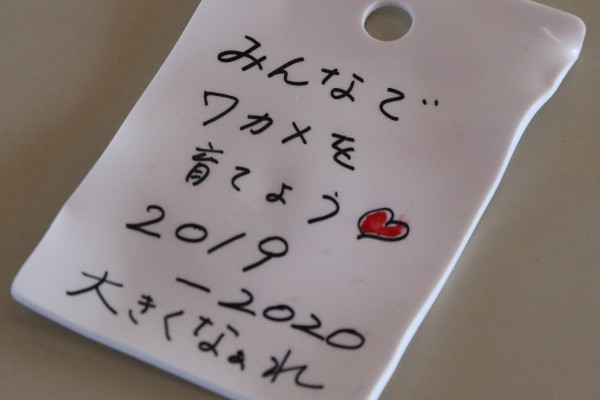 みんなで
ワカメを
育てよう
2019
-2020
大きくなぁれ